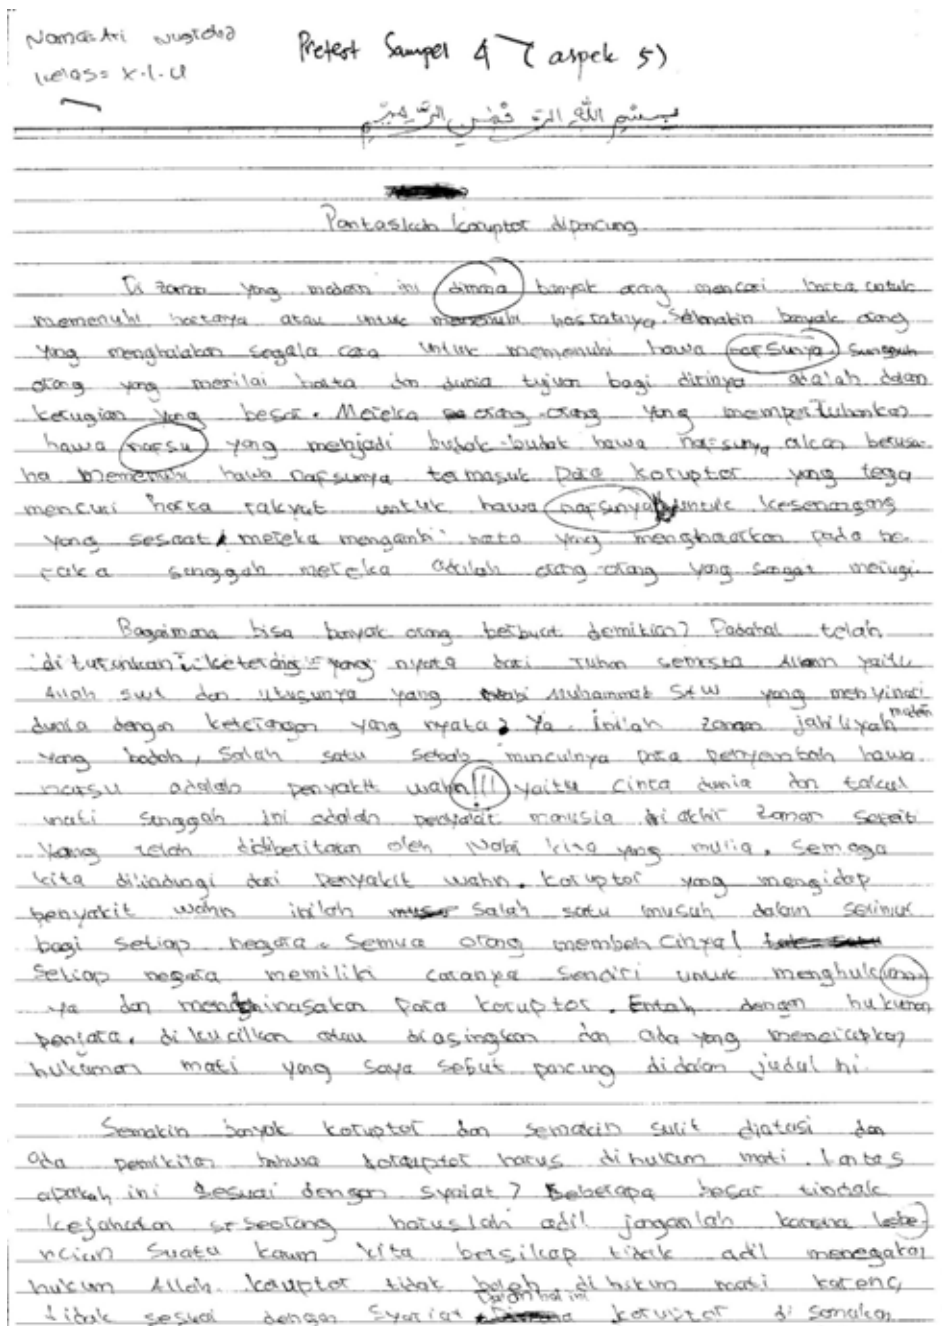 Nama: Ari
Kelas = X.I.U
Pretest Sampel 4 (aspek 5)
بسم الله الرحمن الرحيم
Pantaskah koruptor dipancung
Di zaman yang modern ini dimana banyak orang mencari harta untuk
memenuhi hartanya atau untuk memenuhi hasratnya. Semakin banyak orang
yang menghalalkan segala cara untuk memenuhi hawa nafsunya sungguh
orang yang menilai harta dan dunia tujuan bagi dirinya adalah dalam
kerugian yang besar. Mereka orang-orang yang mempertuhankan
hawa nafsu yang menjadi budak-budak hawa nafsunya akan berusa-
ha memenuhi hawa nafsunya termasuk para koruptor yang tega
mencuri harta rakyat untuk hawa nafsunya untuk kesenangang
yang sesaat mereka mengambi harta yang menghatarkan pada ne-
raka sunggah mereka adalah orang-orang yang sangat merugi.
Bagaimana bisa banyak orang berbuat demikian? Padahal telah
diturunkan yang nyata dari Tuhan semesta Alam yaitu
Allah swt dan utusunya yang Muhammat SAW yang menyinari
dunia dengan keterangan yang nyata? Ya inilah zaman jahiliyah
yang bodoh, salah satu sebab munculnya para penyembah hawa
nafsu adalah penyakit wahn!!! yaitu cinta dunia dan takut
mati sunggah ini adalah penyakit manusia di akhir zaman seperti
yang telah diberitakan oleh Nabi kita yang mulia. Semoga
kita dilindungi dari penyakit wahn. Koruptor yang mengidap
penyakit wahn inilah salah satu musuh dalam selimut
bagi setiap negara. Semua orang membencinya!
Setiap negara memiliki caranya sendiri untuk menghukuman
ya dan membinasakan para koruptor. Entah dengan hukuman
penjara, di kucilkan atau diasingkan dan ada yang menetapkan
hukuman mati yang saya sebut pancung didalam judul ini.
Semakin banyak koruptor dan semakin sulit diatasi dan
ada pemikiran bahwa koruptor harus dihukum mati. Lantas
apakah ini sesuai dengan syaiat? Seberapa besar tindak
kejahatan seseorang haruslah adil janganlah karena kebe-
ncian suatu kaum kita bersikap tidak adil menegakan
hukum Allah koruptor tidak boleh di hukum mati karena
tidak sesuai dengan Syariat Dalam hal ini koruptor di samakan